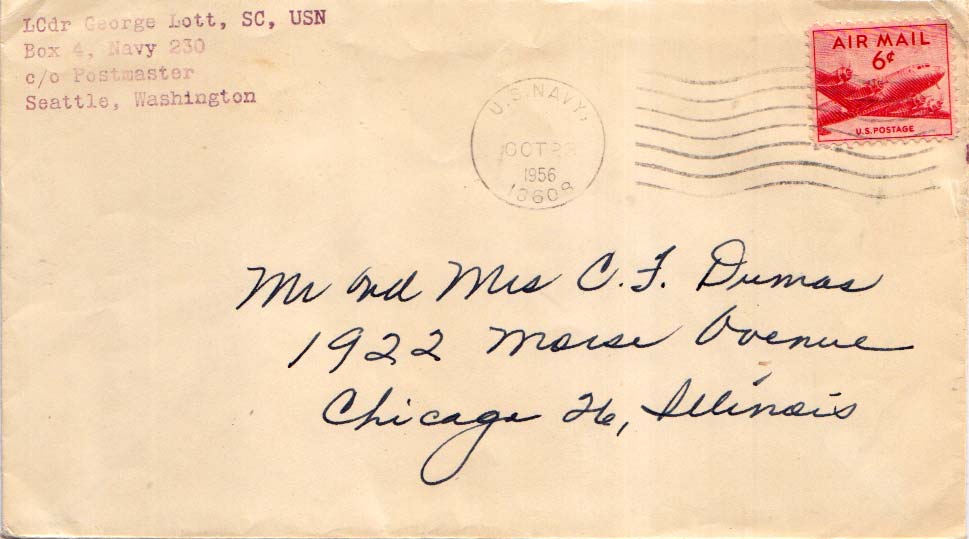 LCdr George Lott, SC, USN
Box 4, Navy 230
c/o Postmaster
Seattle, Washington
AIR MAIL
6¢
U.S. POSTAGE
U.S. NAVY,
OCT
1956
Mr and Mrs C. F. Dumas
1922 Morse Avenue
Chicago 26, Illinois